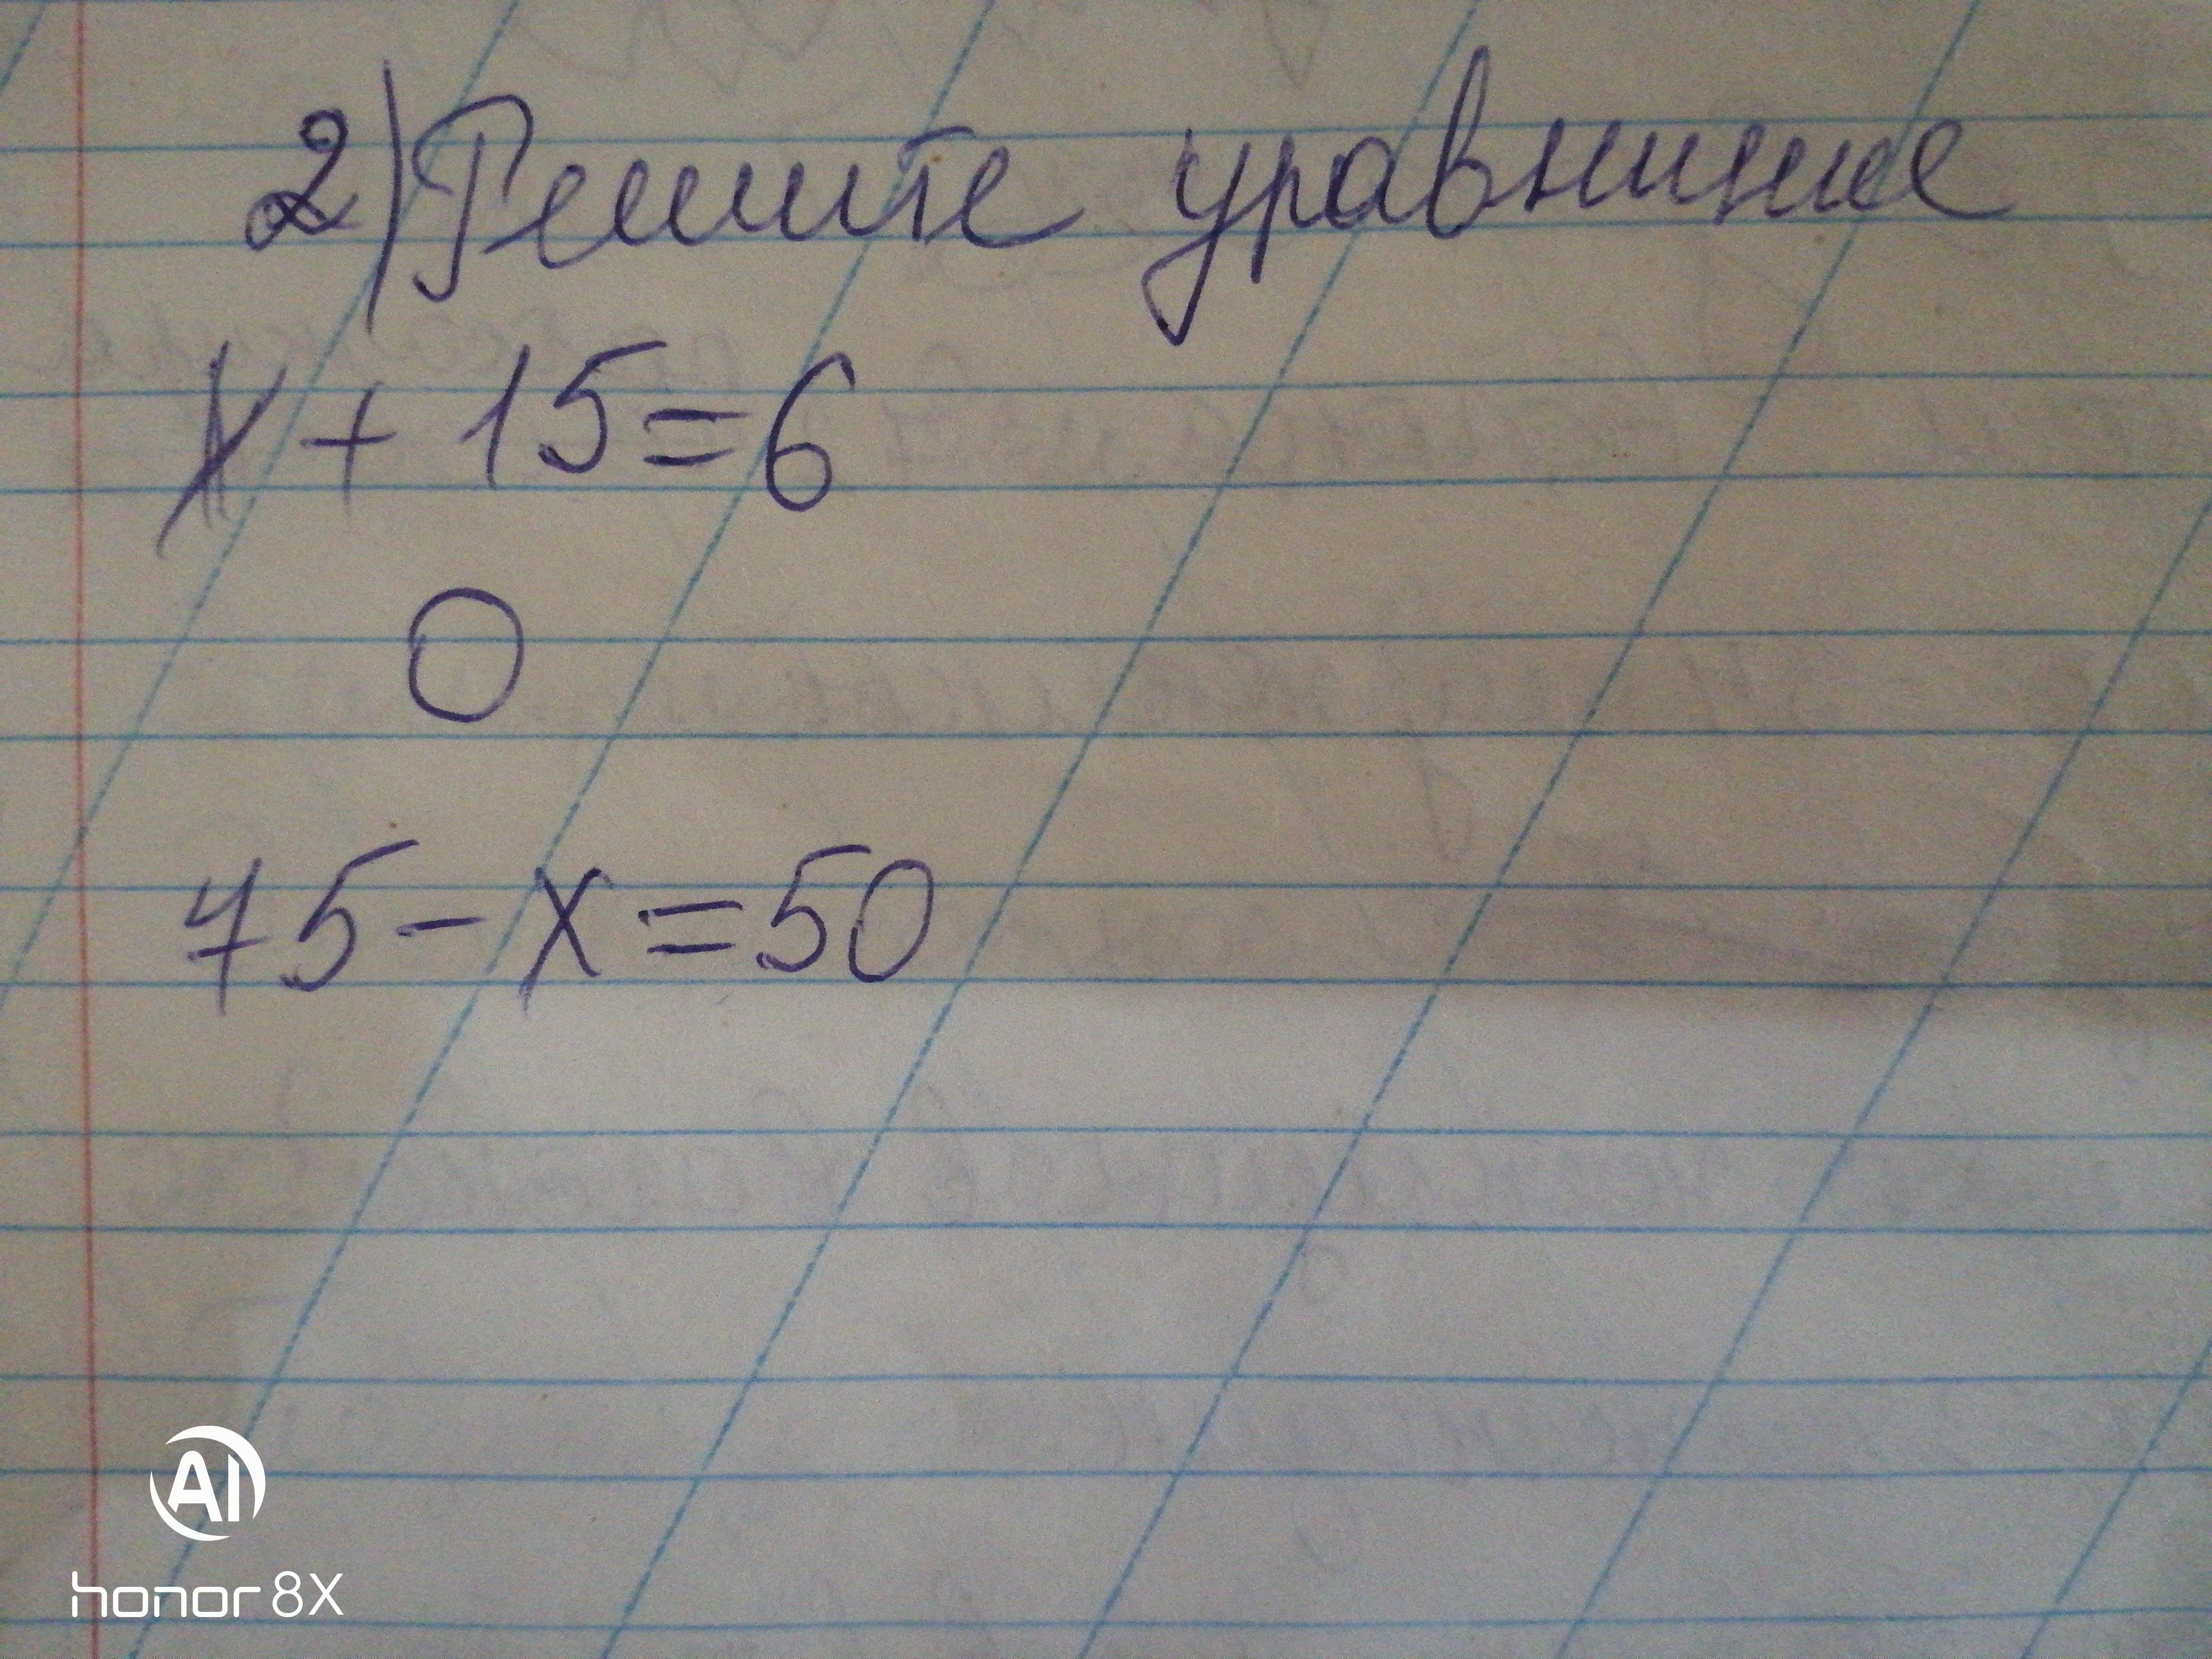 2) Решите уравнние
x + 15 = 6
0
75 - x = 50
AI
honor 8X